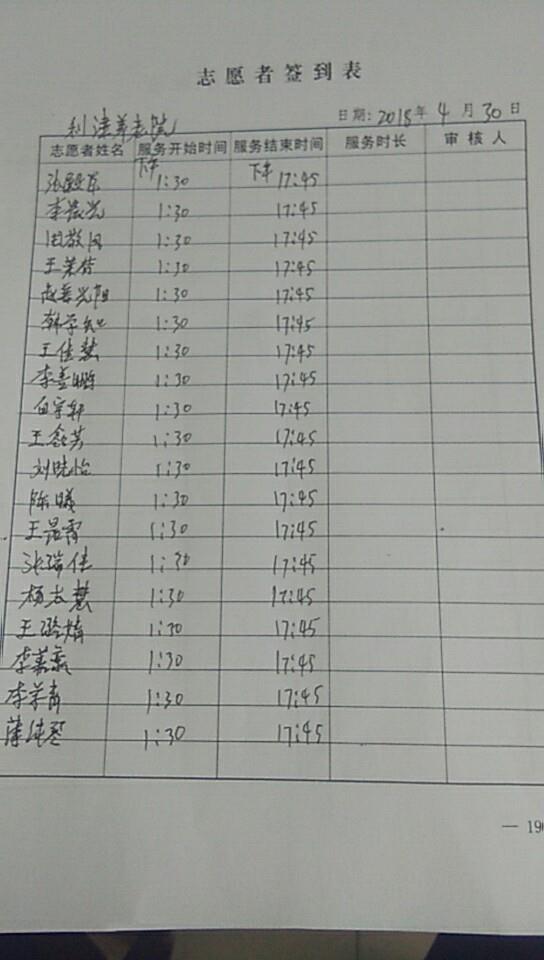 志愿者签到表
日期：2018年4月30日
利津养老院
志愿者姓名 服务开始时间 服务结束时间 服务时长 审核人
下午 下午
张毅东 1:30 17:45
李晨光 1:30 17:45
田敬国 1:30 17:45
王荣倩 1:30 17:45
赵善光阳 1:30 17:45
韩学 1:30 17:45
王佳慧 1:30 17:45
李孟 1:30 17:45
白宇轩 1:30 17:45
王 芸 1:30 17:45
刘晓怡 1:30 17:45
陈曦 1:30 17:45
王晨霄 1:30 17:45
张瑞佳 1:30 17:45
杨志慧 1:30 17:45
王璐婧 1:30 17:45
李 1:30 17:45
李 青 1:30 17:45
薄纯 1:30 17:45
— 190